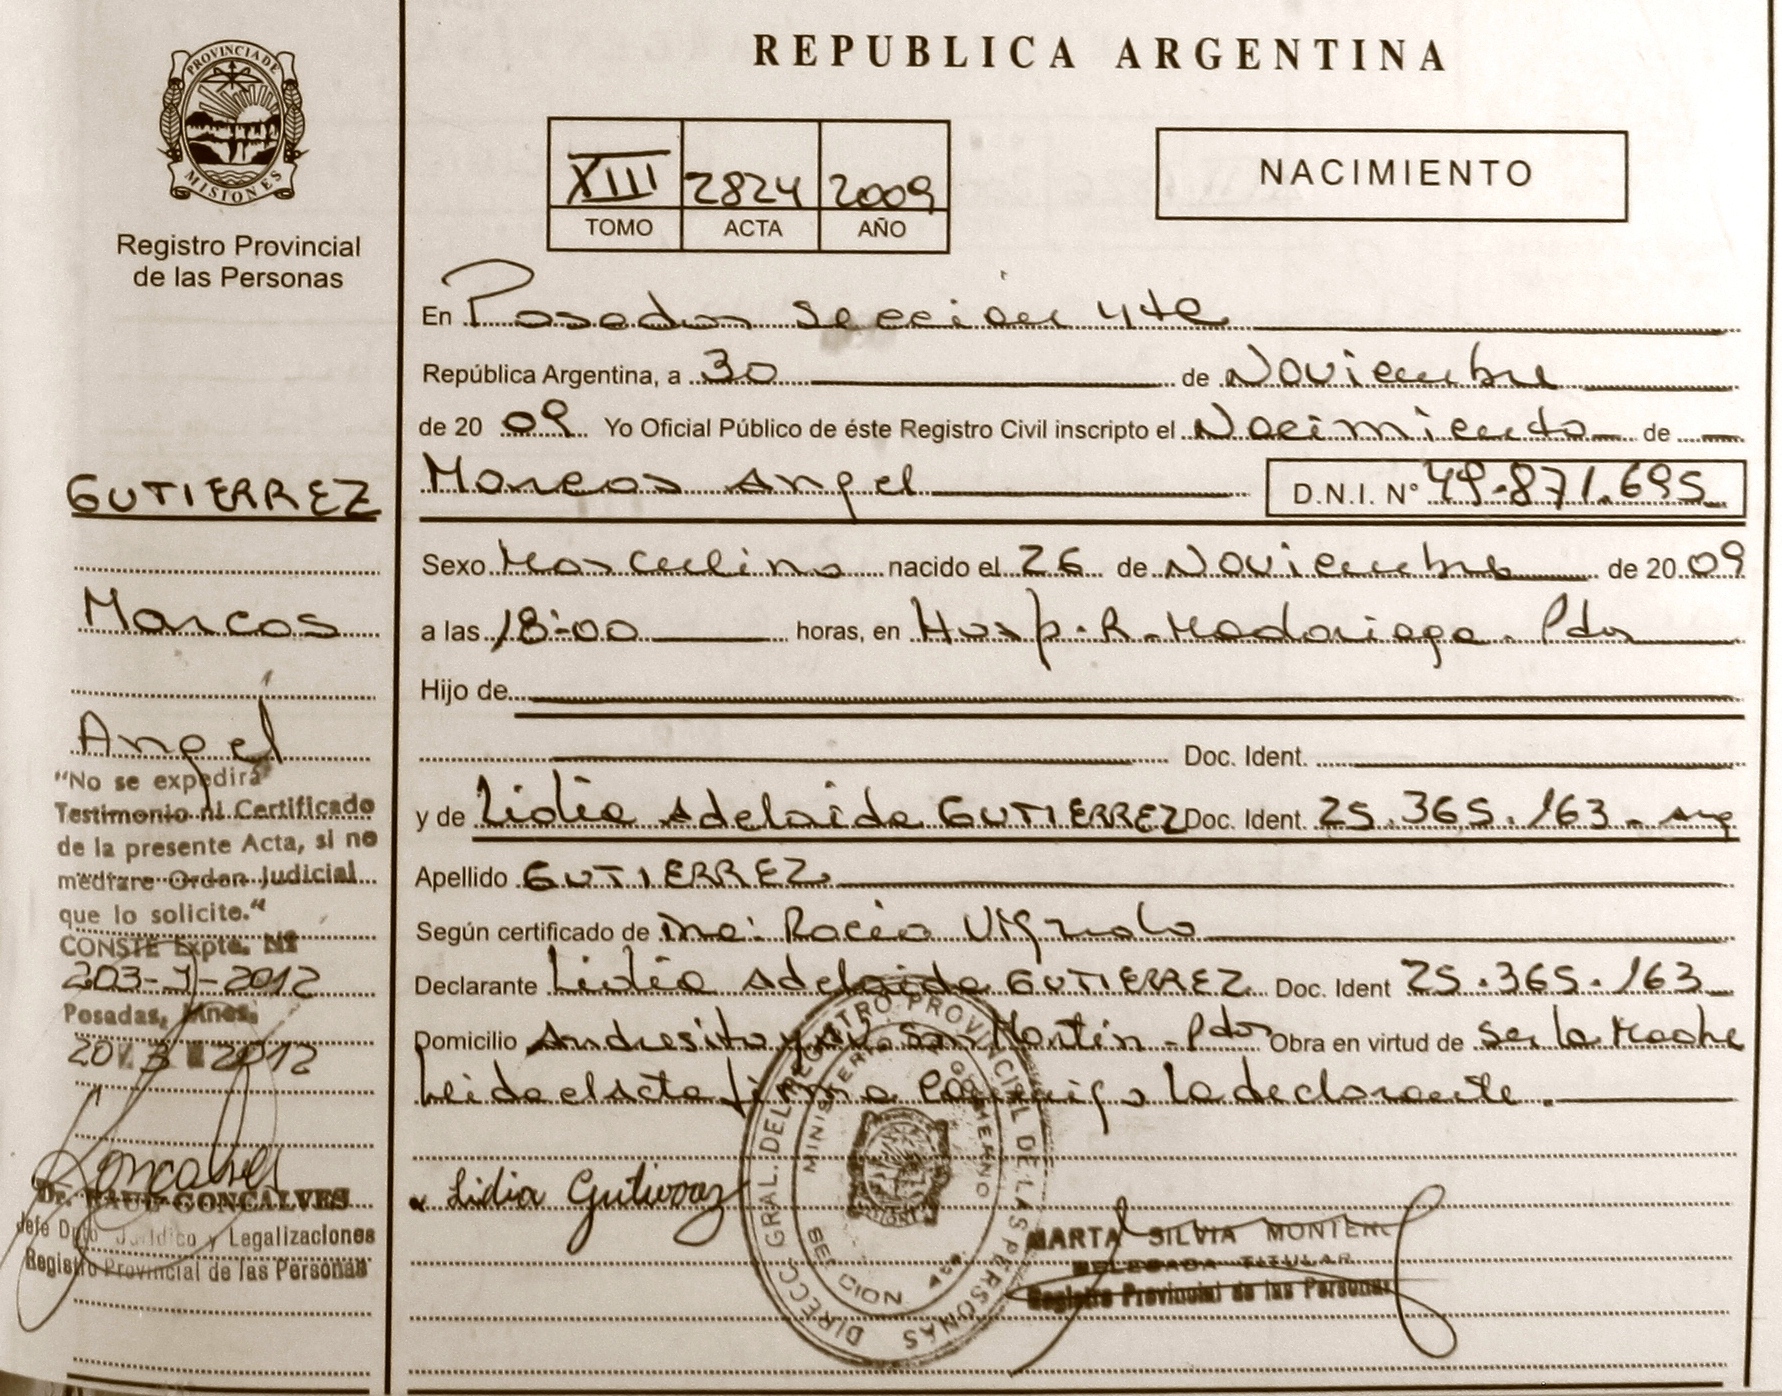 PROVINCIA DE
MISIONES
Registro Provincial
de las Personas
GUTIERREZ
Marcos
Angel
"No se expedirá
Testimonio ni Certificado
de la presente Acta, si no
mediare Orden Judicial
que lo solicite."
CONSTE Expte. Nº
203-J-2012
Posadas, Mnes.
20 3 2012
Dr. RAUL GONCALVES
Jefe Dpto Jurídico y Legalizaciones
Registro Provincial de las Personas
REPUBLICA ARGENTINA
XIII 2824 2009
TOMO ACTA AÑO
NACIMIENTO
En Posadas Sección 4ta
República Argentina, a 30 de Noviembre
de 20 09 Yo Oficial Público de éste Registro Civil inscripto el Nacimiento de
Marcos Angel D.N.I. Nº 49.871.695
Sexo Masculino nacido el 26 de Noviembre de 20 09
a las 18:00 horas, en Hosp. R. Madariaga. Pdas
Hijo de
Doc. Ident.
y de Lidia Adelaida GUTIERREZ Doc. Ident. 25.365.163 - Arg
Apellido GUTIERREZ
Según certificado de Rocio Vignolo
Declarante Lidia Adelaida GUTIERREZ Doc. Ident 25.365.163
Domicilio Andresito y San Martín - Pdas Obra en virtud de Ser la Madre
Leida el Acta firma Conmigo la declarante.
Lidia Gutierrez
DIRECC. GRAL. DEL REGISTRO PROVINCIAL DE LAS PERSONAS
MINISTERIO GOBIERNO
SECCION 4ta.
MARTA SILVIA MONTERO
DELEGADA TITULAR
Registro Provincial de las Personas